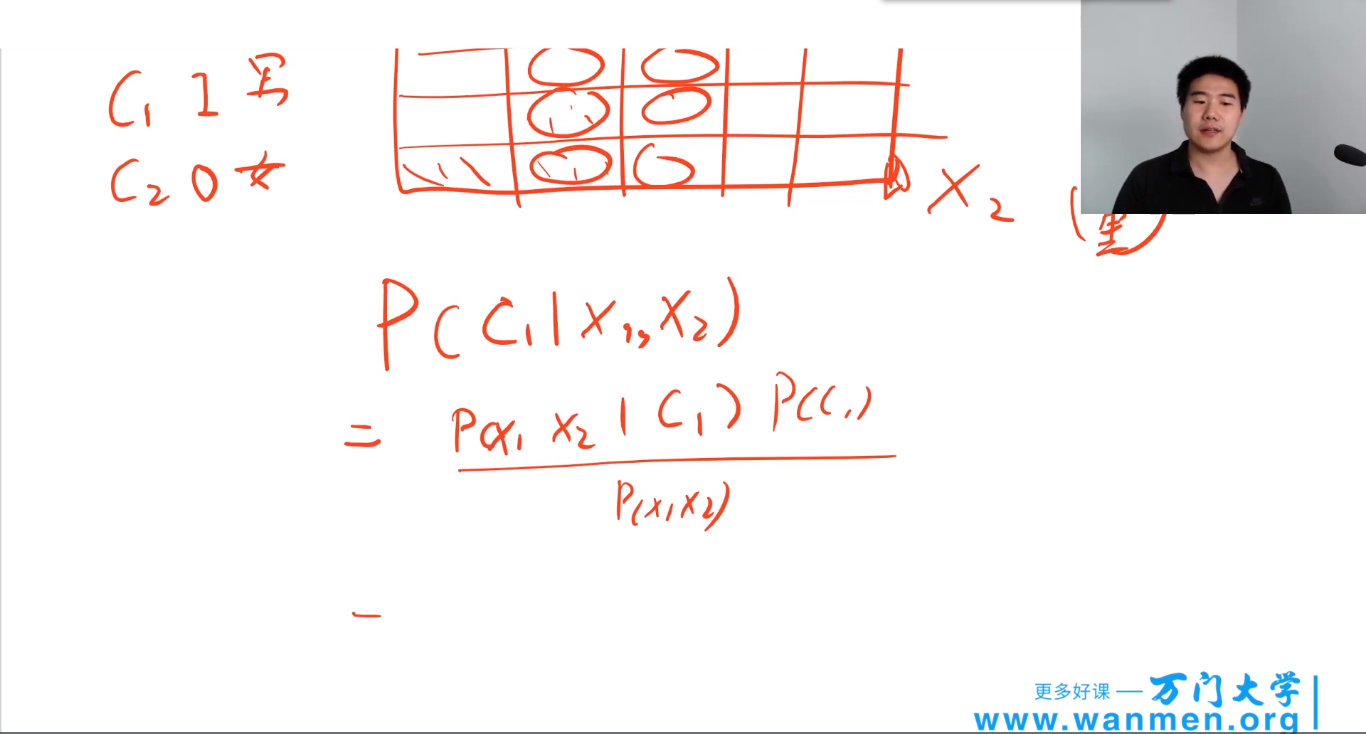 C₁ 1 男
C₂ 0 女
X₂
P(C₁|X₁,X₂)
= P(X₁ X₂ | C₁) P(C₁)
P(X₁X₂)
更多好课 — 万门大学
www.wanmen.org